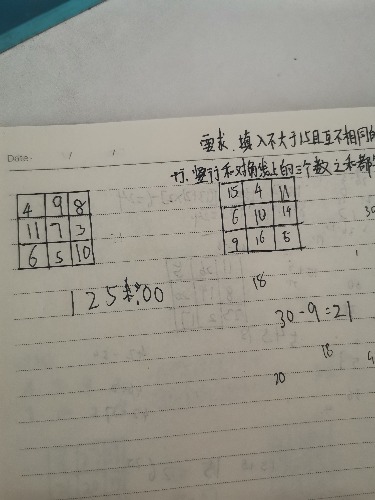 要求,填入不大于15且互不相同的
Date / /
行、竖行和对角线上的三个数之和都
4 9 8
11 7 3
6 5 10
15 4 11
6 10 14
9 16 5
1 2 5
00
18
30-9=21
18
20